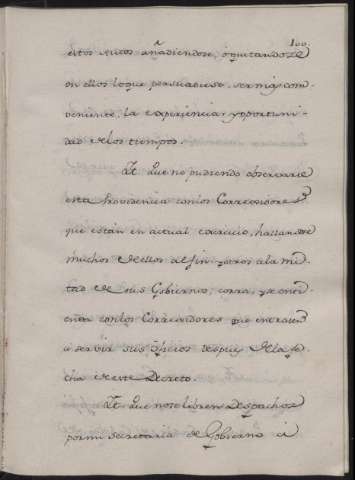 100
estos autos añadiendose, ò quitandose
en ellos lo que persuadiese ser mas com
beniente, la experiencia, y oportuni
dad de los tiempos.
It. que no pudiendo observarse
esta Providencia con los Corregidores
que están en actual exercicio, hallandose
muchos de ellos al fin, y otros a la mi
tad de sus Gobiernos, corra, y se enti
enda con los Corregidores que entrasen
á servir sus oficios despues de la fe
cha de este Decreto.
It. que no se libren Despachos
por mi Secretaria de Gobierno á